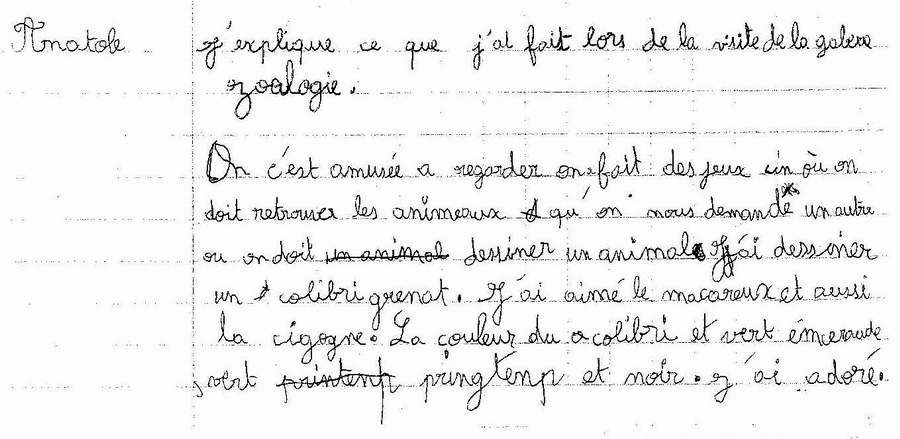 Anatole J'explique ce que j'ai fait lors de la visite de la galerie
zoologie.
On c'est amusée a regarder on fait des jeux un où on
doit retrouser les animeaux qu'on nous demande un autre
ou on doit un animal dessiner un animal J'ai dessiner
un colibri grenat. J'ai aimé le macareux et aussi
la cigogne. La couleur du colibri et vert émeraude
, vert printenp pringtemp et noir. J'ai adoré.